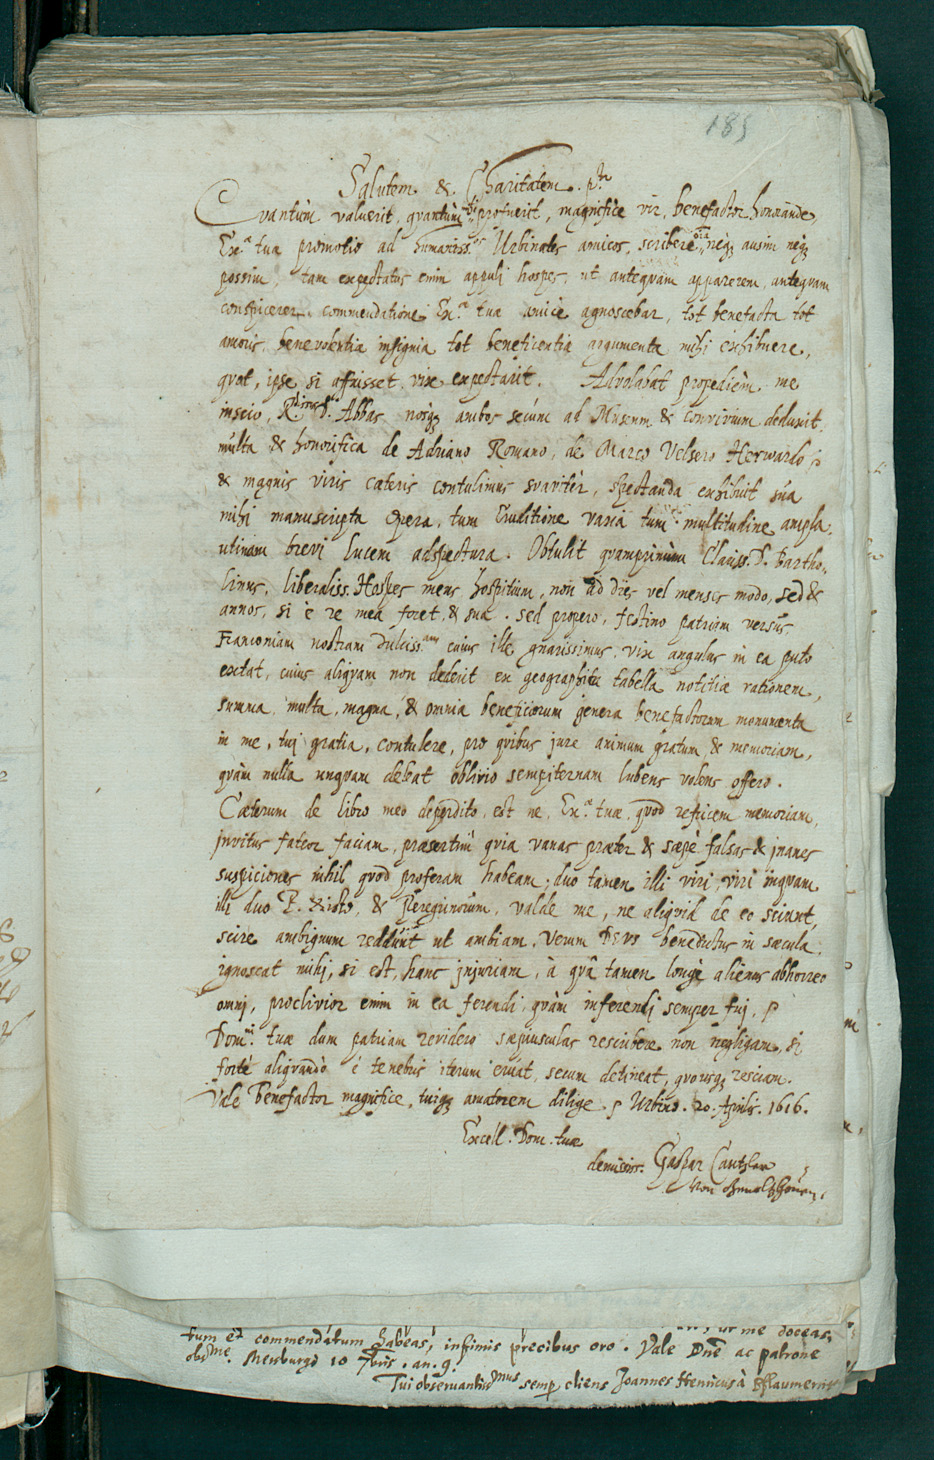 185
Salutem. &. Charitatem. p.te
Quantùm valuerit, quantùm profuerit, magnifice vir, benefactor honorande,
Ex.a tua promotio ad humaniss.os Urbinates amicos, scribere neq; ausim neq;
possim, tam expectatus enim appuli hospes, ut antequam apparerem, antequam
conspicerer, commendatione Ex.a tua amicè agnoscebar, tot benefacta tot
amoris, benevolentia insignia tot beneficentia argumenta mihi exhibuere,
quot, ipse si affuisset, vix expectarit. Advolabat propedièm, me
inscio, R.dimus D. Abbas nosq; ambos secùm ad Musæum & convivium deduxit,
multa & honorifica de Adriano Romano, de Marco Velsero Herwardo
& magnis viris cæteris contulimus suavitèr, spectanda exhibuit sua
mihi manuscripta opera, tum Eruditione varia tum multitudine ampla,
utinam brevi lucem adspectura. Obtulit quamprimùm Clariss. D. Bartho-
linus, liberaliss. Hospes meus hospitium, non ad dies vel menses modo, sed &
annos, si è re mea foret, & sua. sed propero, festino patriam versùs,
Franconiam nostram dulciss.am cuius ille gnarissimus, vix angulus in ea puto
extat, cuius aliquam non dederit ex geographica tabella notitiæ rationem,
summa, multa, magna, & omnia beneficiorum genera benefactorum monumenta
in me, tuj gratia, contulere, pro quibus jure animum gratum & memoriam,
quàm nulla unquam deleat oblivio sempiternam lubens volens offero.
Cæterum de libro meo deperdito, est ne, Ex.a tuæ, quod refricem memoriam,
invitus fateor faciam, præsertim quia vanas præter & sæpè falsas & inanes
suspiciones nihil quod proferam habeam; duo tamen illi viri, viri inquam
illi duo P. & Peregrinorum, valde me, ne aliquid de eo sciant,
scire ambiguum reddunt ut ambiam, verum DEUS benedictus in sæcula,
ignoscat mihj, si est, hanc injuriam, à quâ tamen longè alienus abhorreo
omnj, proclivior enim in ea ferendi, quàm inferendj semper fuj,
Dom.ni tuæ dum patriam revidero sæpiusculas rescribere non negligam, si
fortè aliquandò è tenebris iterum eruat, secum detineat, quousq; resciam.
Vale Benefactor magnifice, tuiq; amatorem dilige. Urbino. 20. Aprilis. 1616.
Excell. Dom. tuæ
demiciss. Gaspar Cantzler
von
me doceas,
tum et commendatum habeas, infimis precibus oro. Vale Dne ac patrone
obs.me. Mersburgo 10 7bris. an. 9.
Tui observantiss.mus semp cliens Joannes Henricus à Pflaumern